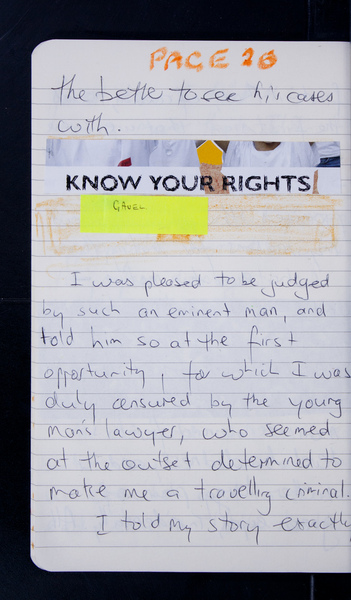 PAGE 20
the bette to see his cases
with.
KNOW YOUR RIGHTS
GAVEL
I was pleased to be judged
by such an eminent man, and
told him so at the first
opportunity, for which I was
duly censured by the young
man's lawyer, who seemed
at the outset determined to
make me a travelling criminal.
I told my story exactly